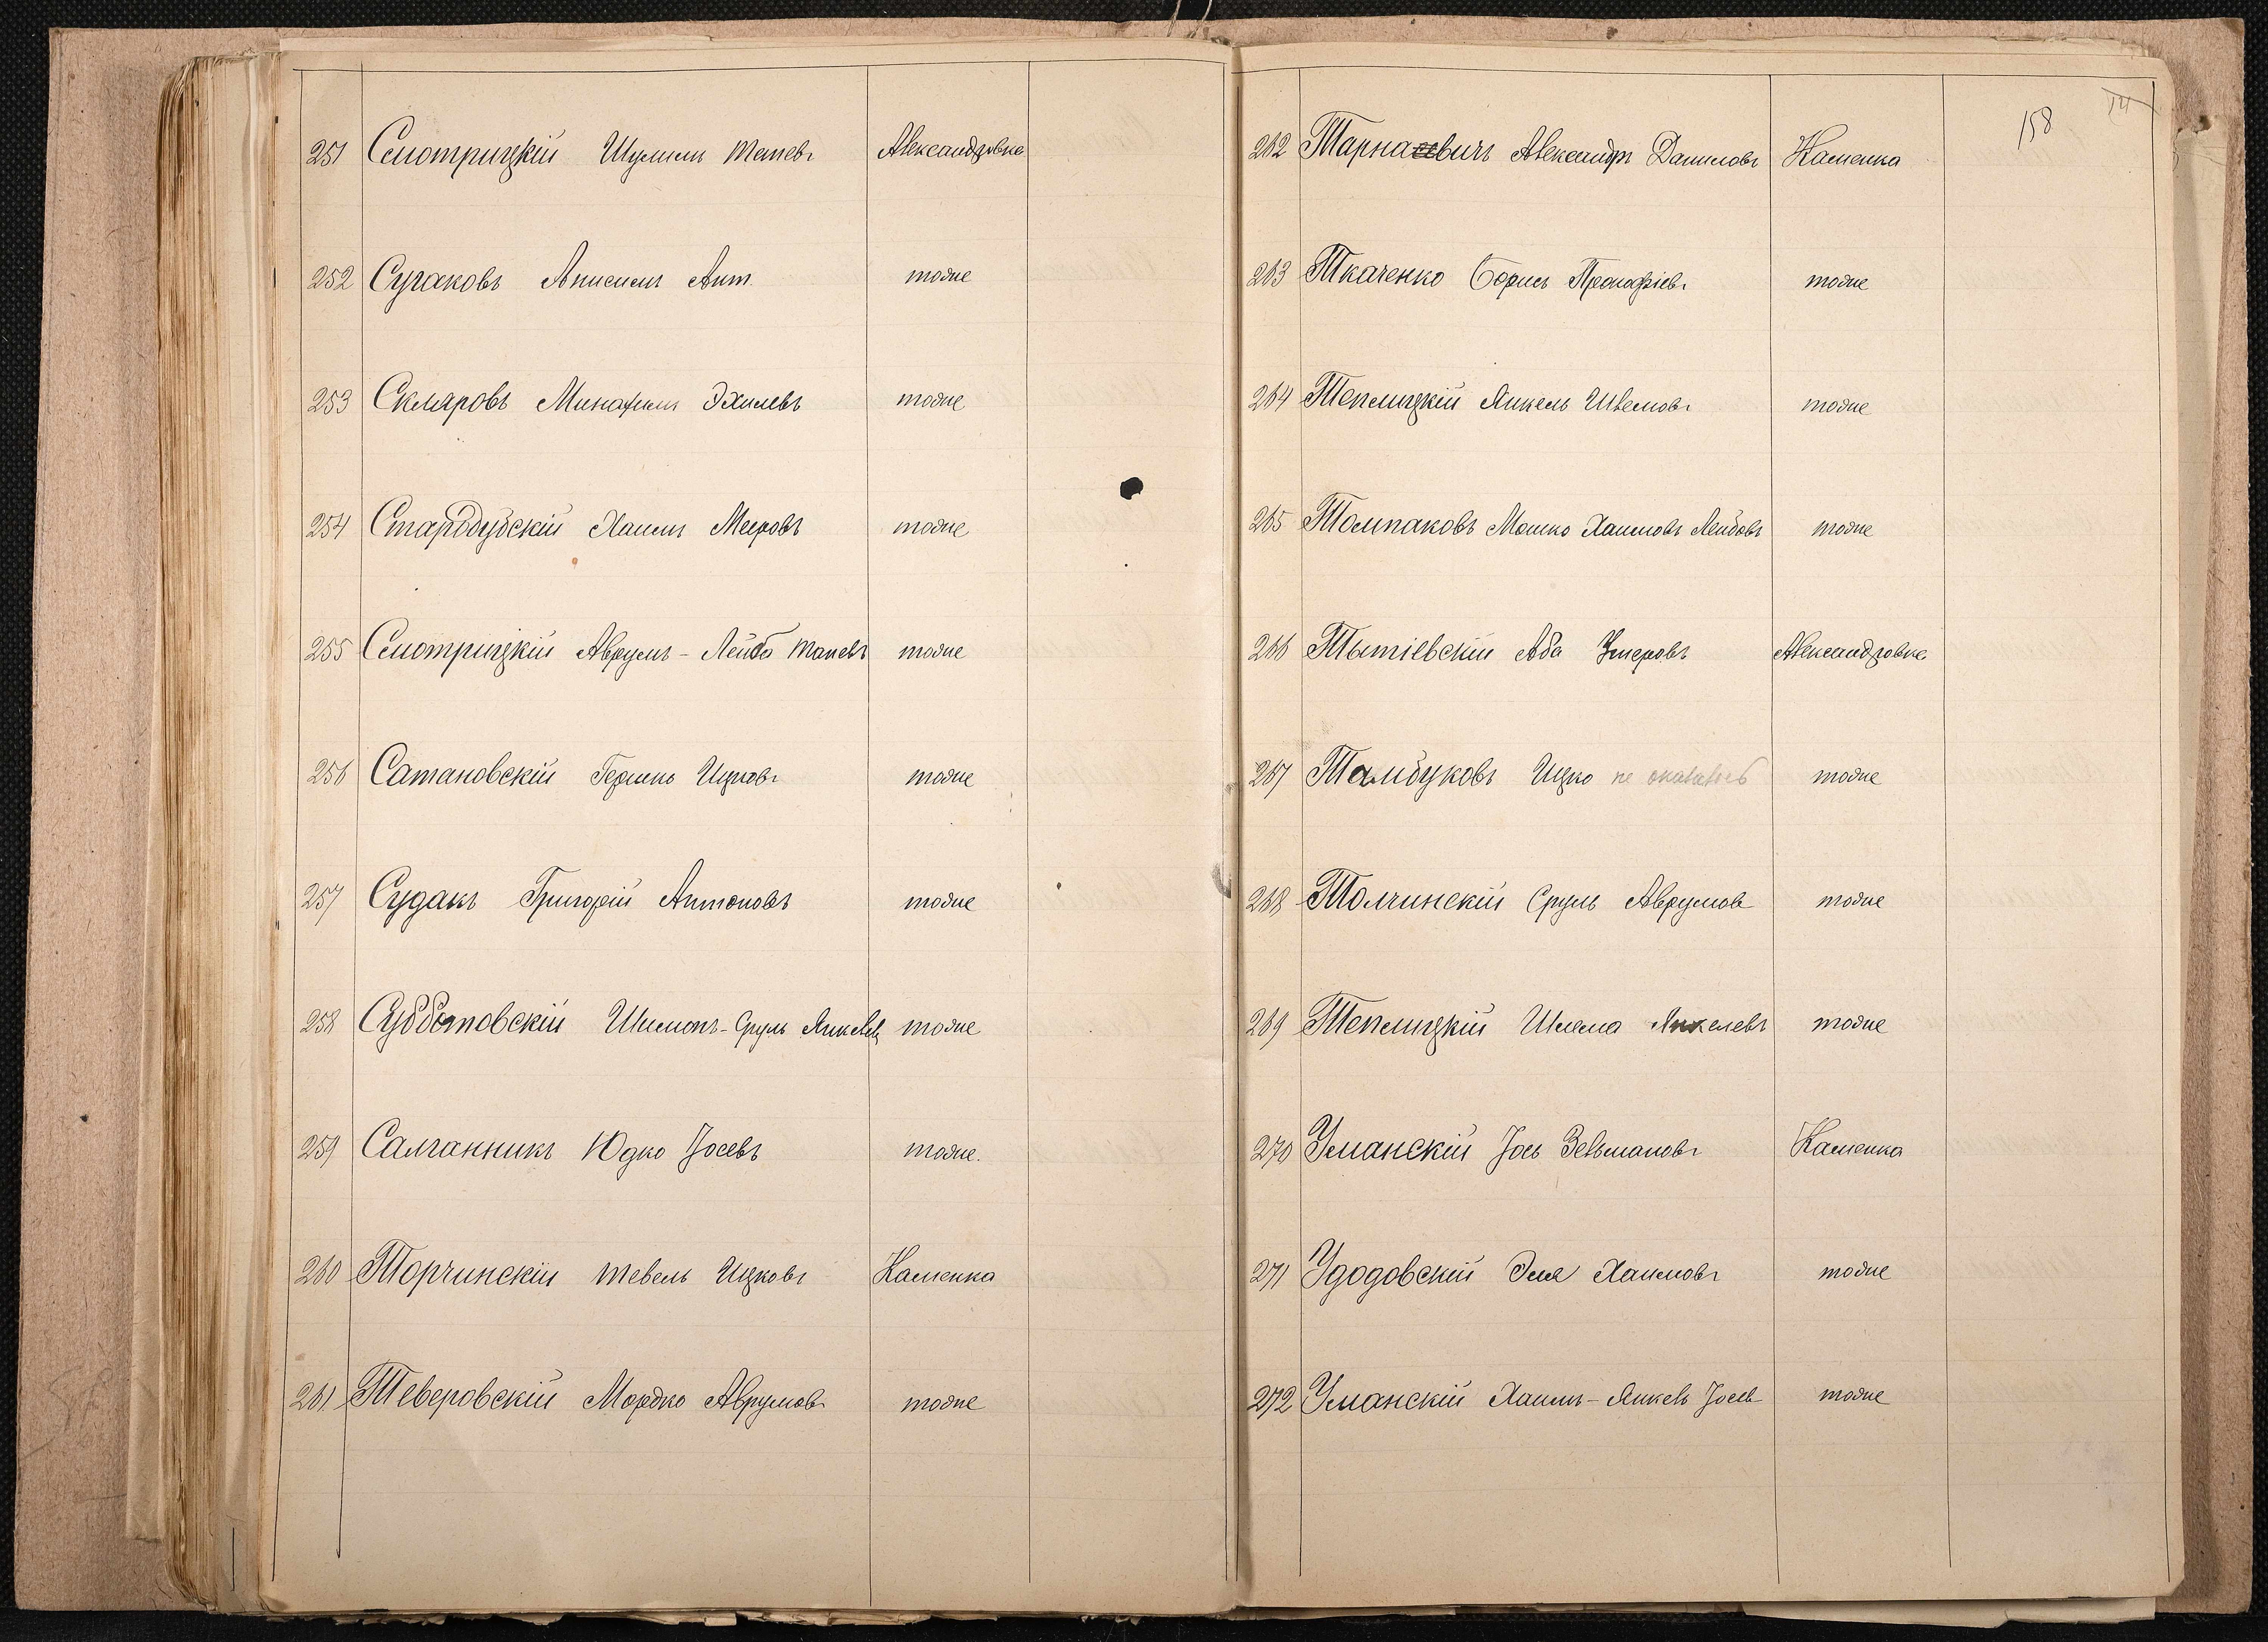 251 Смотрицкій Шулимъ Мотевъ Александровка
252 Сугаковъ Анисимъ Ант. тоже
253 Скляровъ Минахимъ Эхилевъ тоже
254 Стародубскій Хаимъ Мееровъ тоже
255 Смотрицкій Аврумъ-Лейба тоже
256 Сатановскій Гершко Ицковъ тоже
257 Судакъ Григорій Антоновъ тоже
258 Субботовскій Шимонъ-Сруль Янкелев. тоже
259 Салганникъ Юдко Іосевъ тоже.
260 Торчинскій Тевель Ицковъ Каменка
261 Теверовскій Мордко Аврумовъ тоже
158
14
262 Тарнасевичъ Александръ Даниловъ Каменка
263 Ткаченко Борисъ Прокофіевъ тоже
264 Теплицкій Янкель Шлемовъ тоже
265 Толпаковъ Мошко Хаимовъ Лейбовъ тоже
266 Тытіевскій Аба Умеровъ Александровка
267 Тамбуковъ Ицко не оказалось тоже
268 Толчинскій Сруль Аврумов тоже
269 Теплицкій Шлема Янкелевъ тоже
270 Уманскій Іось Зельмановъ Каменка
271 Удодовскій Эля Хаимовъ тоже
272 Уманскій Хаимъ-Янкель Іосев тоже